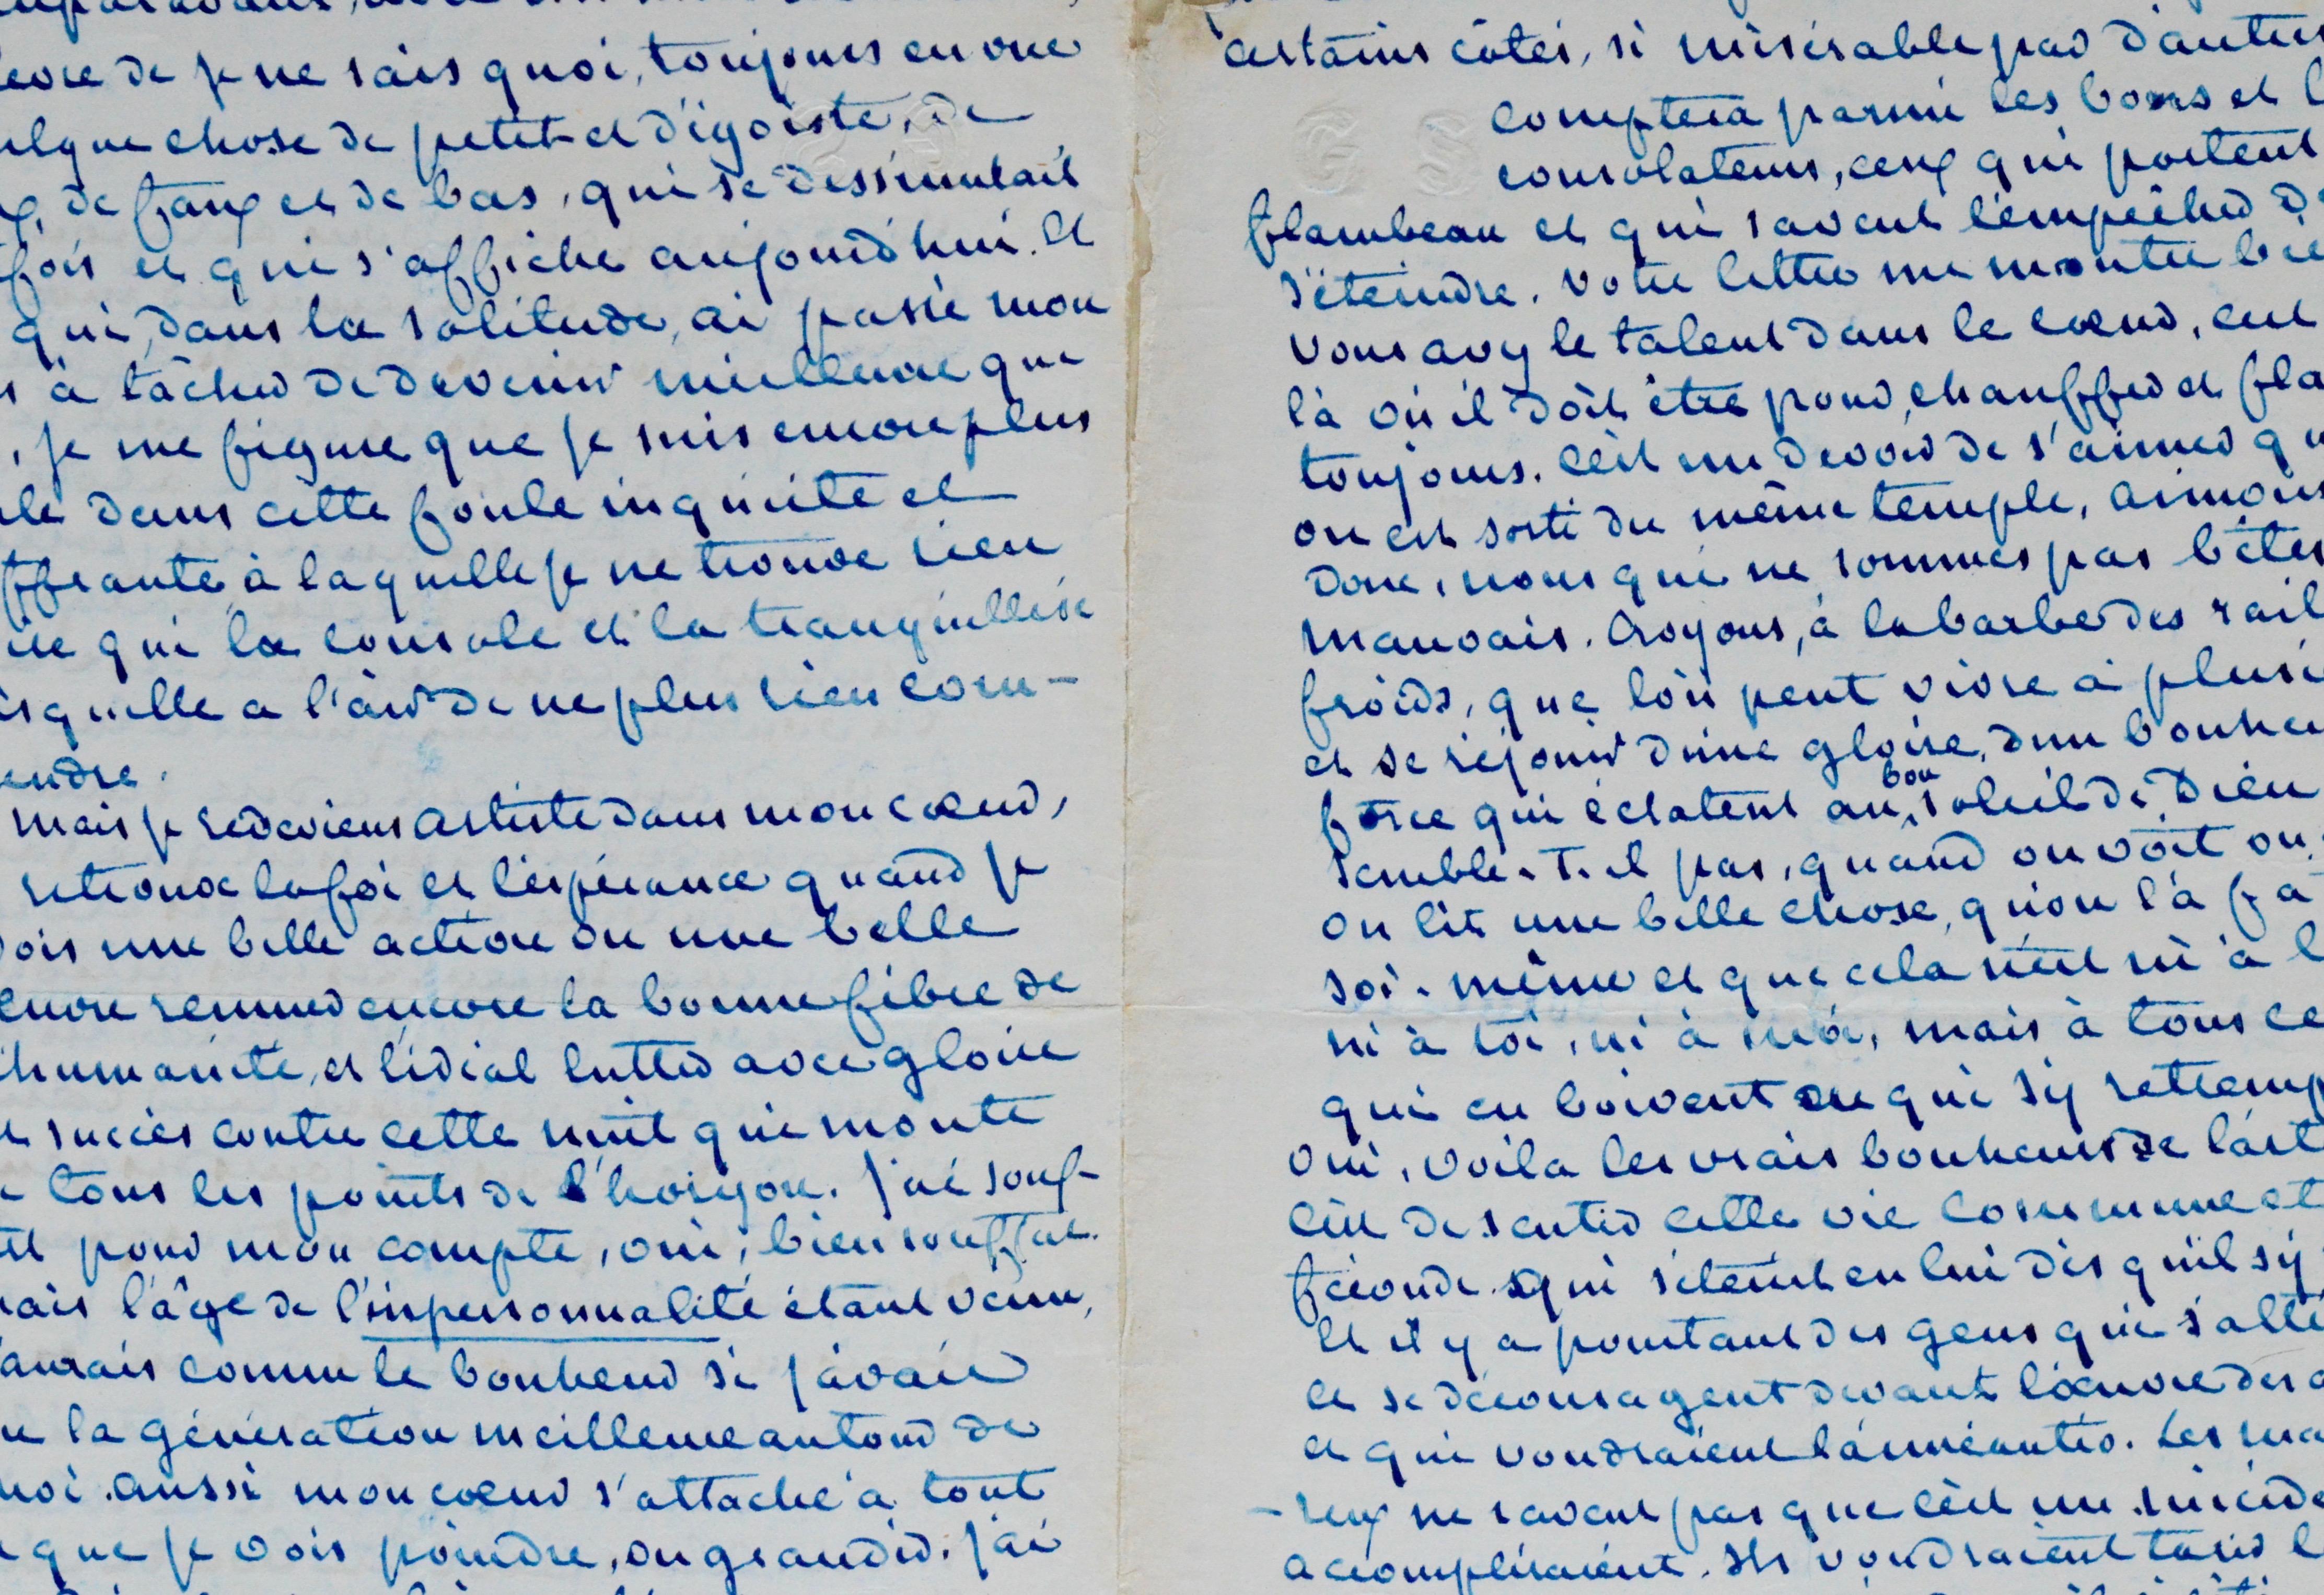 de je ne sais quoi, toujours en vue
chose de petit et d'égoïste, de
de faux et de bas, qui se dissimulait
fois et qui s'affiche aujourd'hui. Et
qui, dans la solitude, ai passé mon
à tâcher de devenir meilleure que
, je me figure que je suis encore plus
dans cette foule inquiète et
ffrante, à laquelle je ne trouve rien
qui la console et la tranquillise
qu'elle a l'air de ne plus rien com-
endre.
Mais je redeviens artiste dans mon cœur,
retrouve la foi et l'espérance quand je
ois une belle action ou une belle
remuer encore la bonne fibre de
humanité, et l'idéal lutter avec gloire
succès contre cette nuit qui monte
tous les points de l'horizon. J'ai souf-
pour mon compte, oui, bien souffert.
ais l'âge de l'impersonnalité étant venu,
aurais connu le bonheur si j'avais
la génération meilleure autour de
moi. Aussi mon cœur s'attache à tout
que je vois poindre, ou grandir. J'ai
certains côtés, si misérable par d'autres
comptera parmi les bons et l
consolateurs, ceux qui portent
flambeau et qui savent l'empêcher d
s'éteindre. Votre lettre me montre bie
vous avez le talent dans le cœur, c'est
là où il doit être pour chauffer et fla
toujours. C'est un devoir de s'aimer qu
on est sorti du même temple, aimons
donc, nous qui ne sommes pas bêtes
mauvais. Croyons, à la barbe des rail
froids, que l'on peut vivre à plusi
et se réjouir d'une gloire, d'un bonheu
force qui éclatent au bon soleil de Dieu
semble-t-il pas, quand on voit ou
on lit une belle chose, qu'on l'a fa
soi-même et que cela n'est ni à l
ni à toi, ni à moi, mais à tous ce
qui en boivent ou qui s'y retremp
Oui, voilà les vrais bonheurs de l'art
C'est de sentir cette vie commune et
féconde qui s'éteint en lui dès qu'il s'y
Et il y a pourtant des gens qui s'atte
et se découragent devant l'œuvre des a
et qui voudraient l'anéantir. Les ma
-reux ne savent pas que c'est un suicide
accompliraient. Ils voudraient tarir l